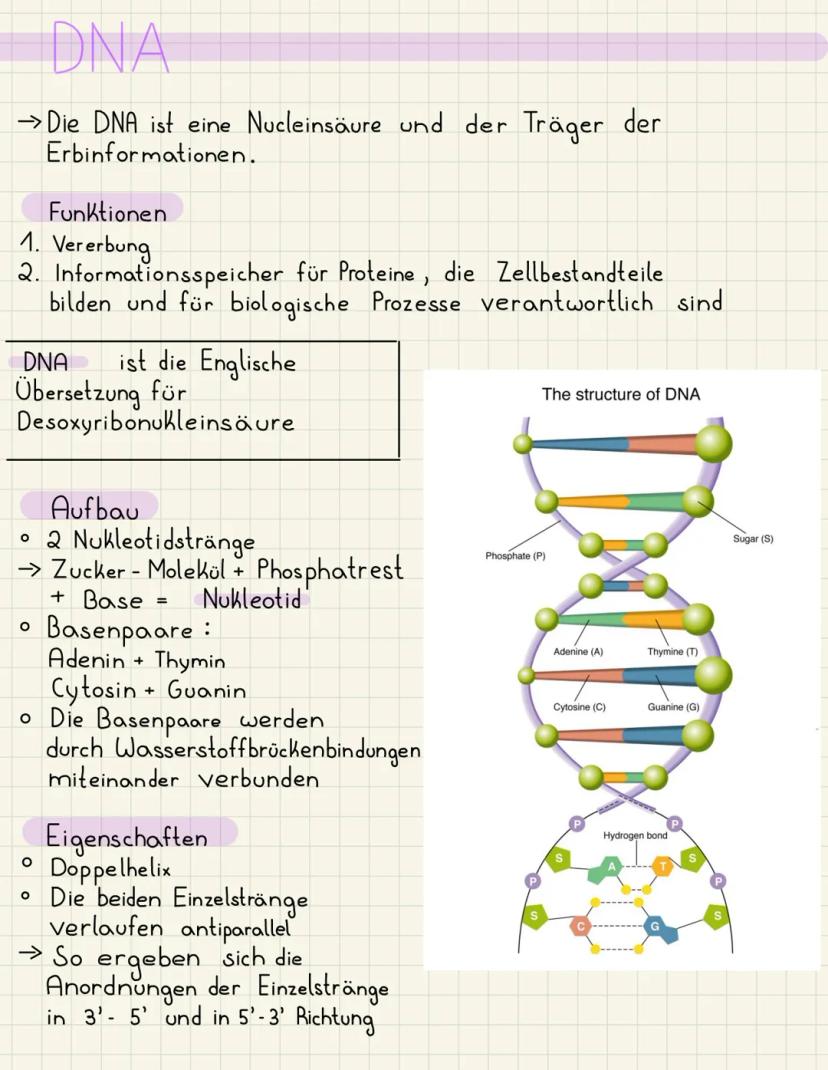 DNA
→ Die DNA ist eine Nucleinsäure und der Träger der
Erbinformationen.
Funktionen
1. Vererbung
2. Informationsspeicher für Proteine, die Zellbestandteile
bilden und für biologische Prozesse verantwortlich sind
DNA ist die Englische
Übersetzung für
Desoxyribonukleinsäure
Aufbau
° 2 Nukleotidstränge
→ Zucker-Molekül + Phosphatrest
+ Base = Nukleotid
° Basenpaare:
Adenin + Thymin
Cytosin + Guanin
° Die Basenpaare werden
durch Wasserstoffbrückenbindungen
miteinander verbunden
Eigenschaften
° Doppelhelix
° Die beiden Einzelstränge
verlaufen antiparallel
→ So ergeben sich die
Anordnungen der Einzelstränge
in 3'- 5' und in 5'-3' Richtung
The structure of DNA
Sugar (S)
Phosphate (P)
Adenine (A) Thymine (T)
Cytosine (C) Guanine (G)
P P
Hydrogen bond
S A T S
P P
S C G S